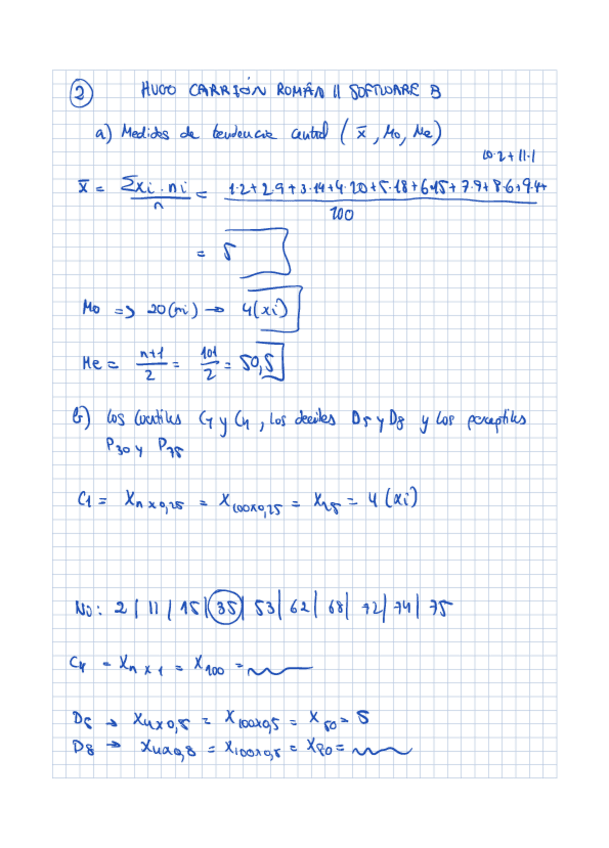 2 HUGO CARRIÓN ROMÁN 11 SOFTWARE B
a) Medidas de tendencia central ( x̄, Mo, Me)
10·2+11·1
x̄ = Σxi·ni / n = 1·2+2·9+3·14+4·20+5·18+6·15+7·9+8·6+9·4+ / 100
= 5
Mo => 20(ni) → 4(xi)
Me = n+1 / 2 = 101 / 2 = 50,5
b) los Cuartiles C1 y C4, los deciles D5 y D8 y los percentiles
P30 y P75
C1 = Xn×0,25 = X100×0,25 = X25 = 4 (xi)
Ni: 2 | 11 | 15 | 35 | 53 | 62 | 68 | 72 | 74 | 75
C4 = Xn×1 = X100 =
D5 → Xn×0,5 = X100×0,5 = X50 = 5
D8 → Xn×0,8 = X100×0,5 = X80 =